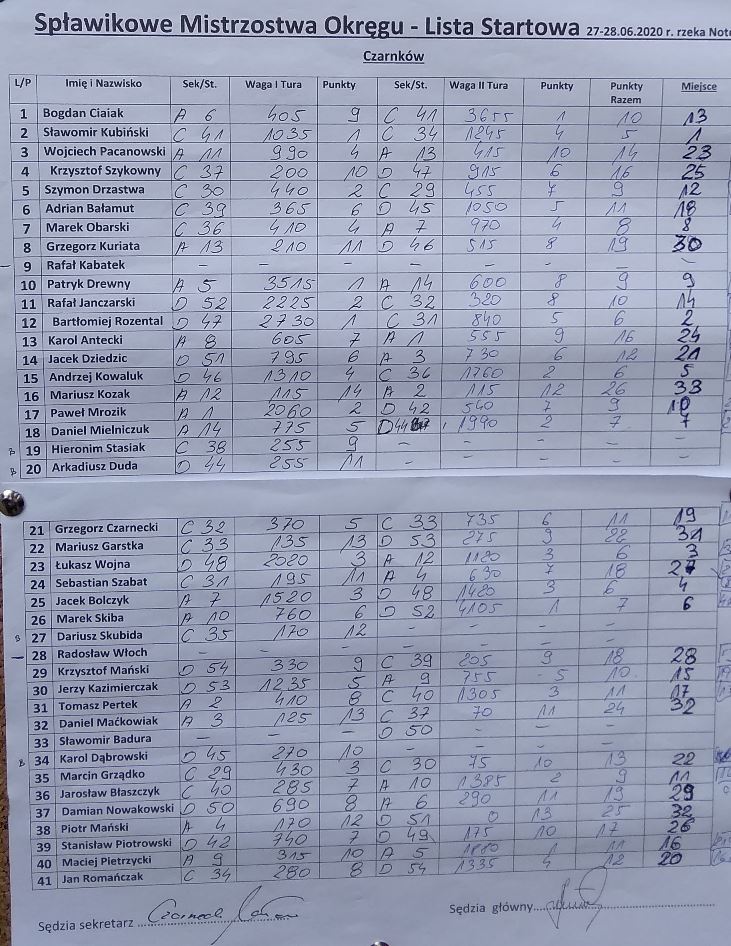 Spławikowe Mistrzostwa Okręgu - Lista Startowa 27-28.06.2020 r. rzeka Note
Czarnków
L/P Imię i Nazwisko Sek/St. Waga I Tura Punkty Sek/St. Waga II Tura Punkty Punkty Razem Miejsce
1 Bogdan Ciaiak A 6 405 9 C 41 3655 1 10 13
2 Sławomir Kubiński C 41 1035 1 C 34 1245 4 5 1
3 Wojciech Pacanowski A 11 990 4 A 13 415 10 14 23
4 Krzysztof Szykowny C 37 200 10 D 47 915 6 16 25
5 Szymon Drzastwa C 30 440 2 C 29 455 7 9 12
6 Adrian Bałamut C 39 365 6 D 45 1050 5 11 18
7 Marek Obarski C 36 410 4 A 7 970 4 8 8
8 Grzegorz Kuriata A 13 210 11 D 46 515 8 19 30
9 Rafał Kabatek – – – – – – – –
10 Patryk Drewny A 5 3515 1 A 14 600 8 9 9
11 Rafał Janczarski D 52 2225 2 C 32 320 8 10 14
12 Bartłomiej Rozental D 47 2730 1 C 31 840 5 6 2
13 Karol Antecki A 8 605 7 A 1 555 9 16 24
14 Jacek Dziedzic D 51 795 6 A 3 730 6 12 21
15 Andrzej Kowaluk D 46 1310 4 C 36 1760 2 6 5
16 Mariusz Kozak A 12 115 14 A 2 115 12 26 33
17 Paweł Mrozik A 1 2060 2 D 42 540 7 9 10
18 Daniel Mielniczuk A 14 775 5 D 44 1990 2 7 7
19 Hieronim Stasiak C 38 255 9 – – – – –
20 Arkadiusz Duda D 44 255 11 – – – – –
21 Grzegorz Czarnecki C 32 370 5 C 33 735 6 11 19
22 Mariusz Garstka C 33 135 13 D 53 275 9 22 31
23 Łukasz Wojna D 48 2020 3 A 12 1120 3 6 3
24 Sebastian Szabat C 31 195 11 A 4 630 7 18 27
25 Jacek Bolczyk A 7 1520 3 D 48 1420 3 6 4
26 Marek Skiba A 10 760 6 D 52 4105 1 7 6
27 Dariusz Skubida C 35 170 12 – – – – –
28 Radosław Włoch – – – – – – – –
29 Krzysztof Mański D 54 330 9 C 39 205 9 18 28
30 Jerzy Kazimierczak D 53 1235 5 A 9 755 5 10 15
31 Tomasz Pertek A 2 410 8 C 40 1305 3 11 17
32 Daniel Maćkowiak A 3 125 13 C 37 70 11 24 32
33 Sławomir Badura – – – D 50 – – – –
34 Karol Dąbrowski D 45 270 10 – – – – –
35 Marcin Grządko C 29 430 3 C 30 75 10 13 22
36 Jarosław Błaszczyk C 40 285 7 A 10 1385 2 9 11
37 Damian Nowakowski D 50 690 8 A 6 290 11 19 29
38 Piotr Mański A 4 170 12 D 51 0 13 25 32
39 Stanisław Piotrowski D 42 740 7 D 49 175 10 17 26
40 Maciej Pietrzycki A 9 315 10 A 5 1880 1 11 16
41 Jan Romańczak C 34 280 8 D 54 1335 4 12 20
Sędzia sekretarz
Sędzia główny